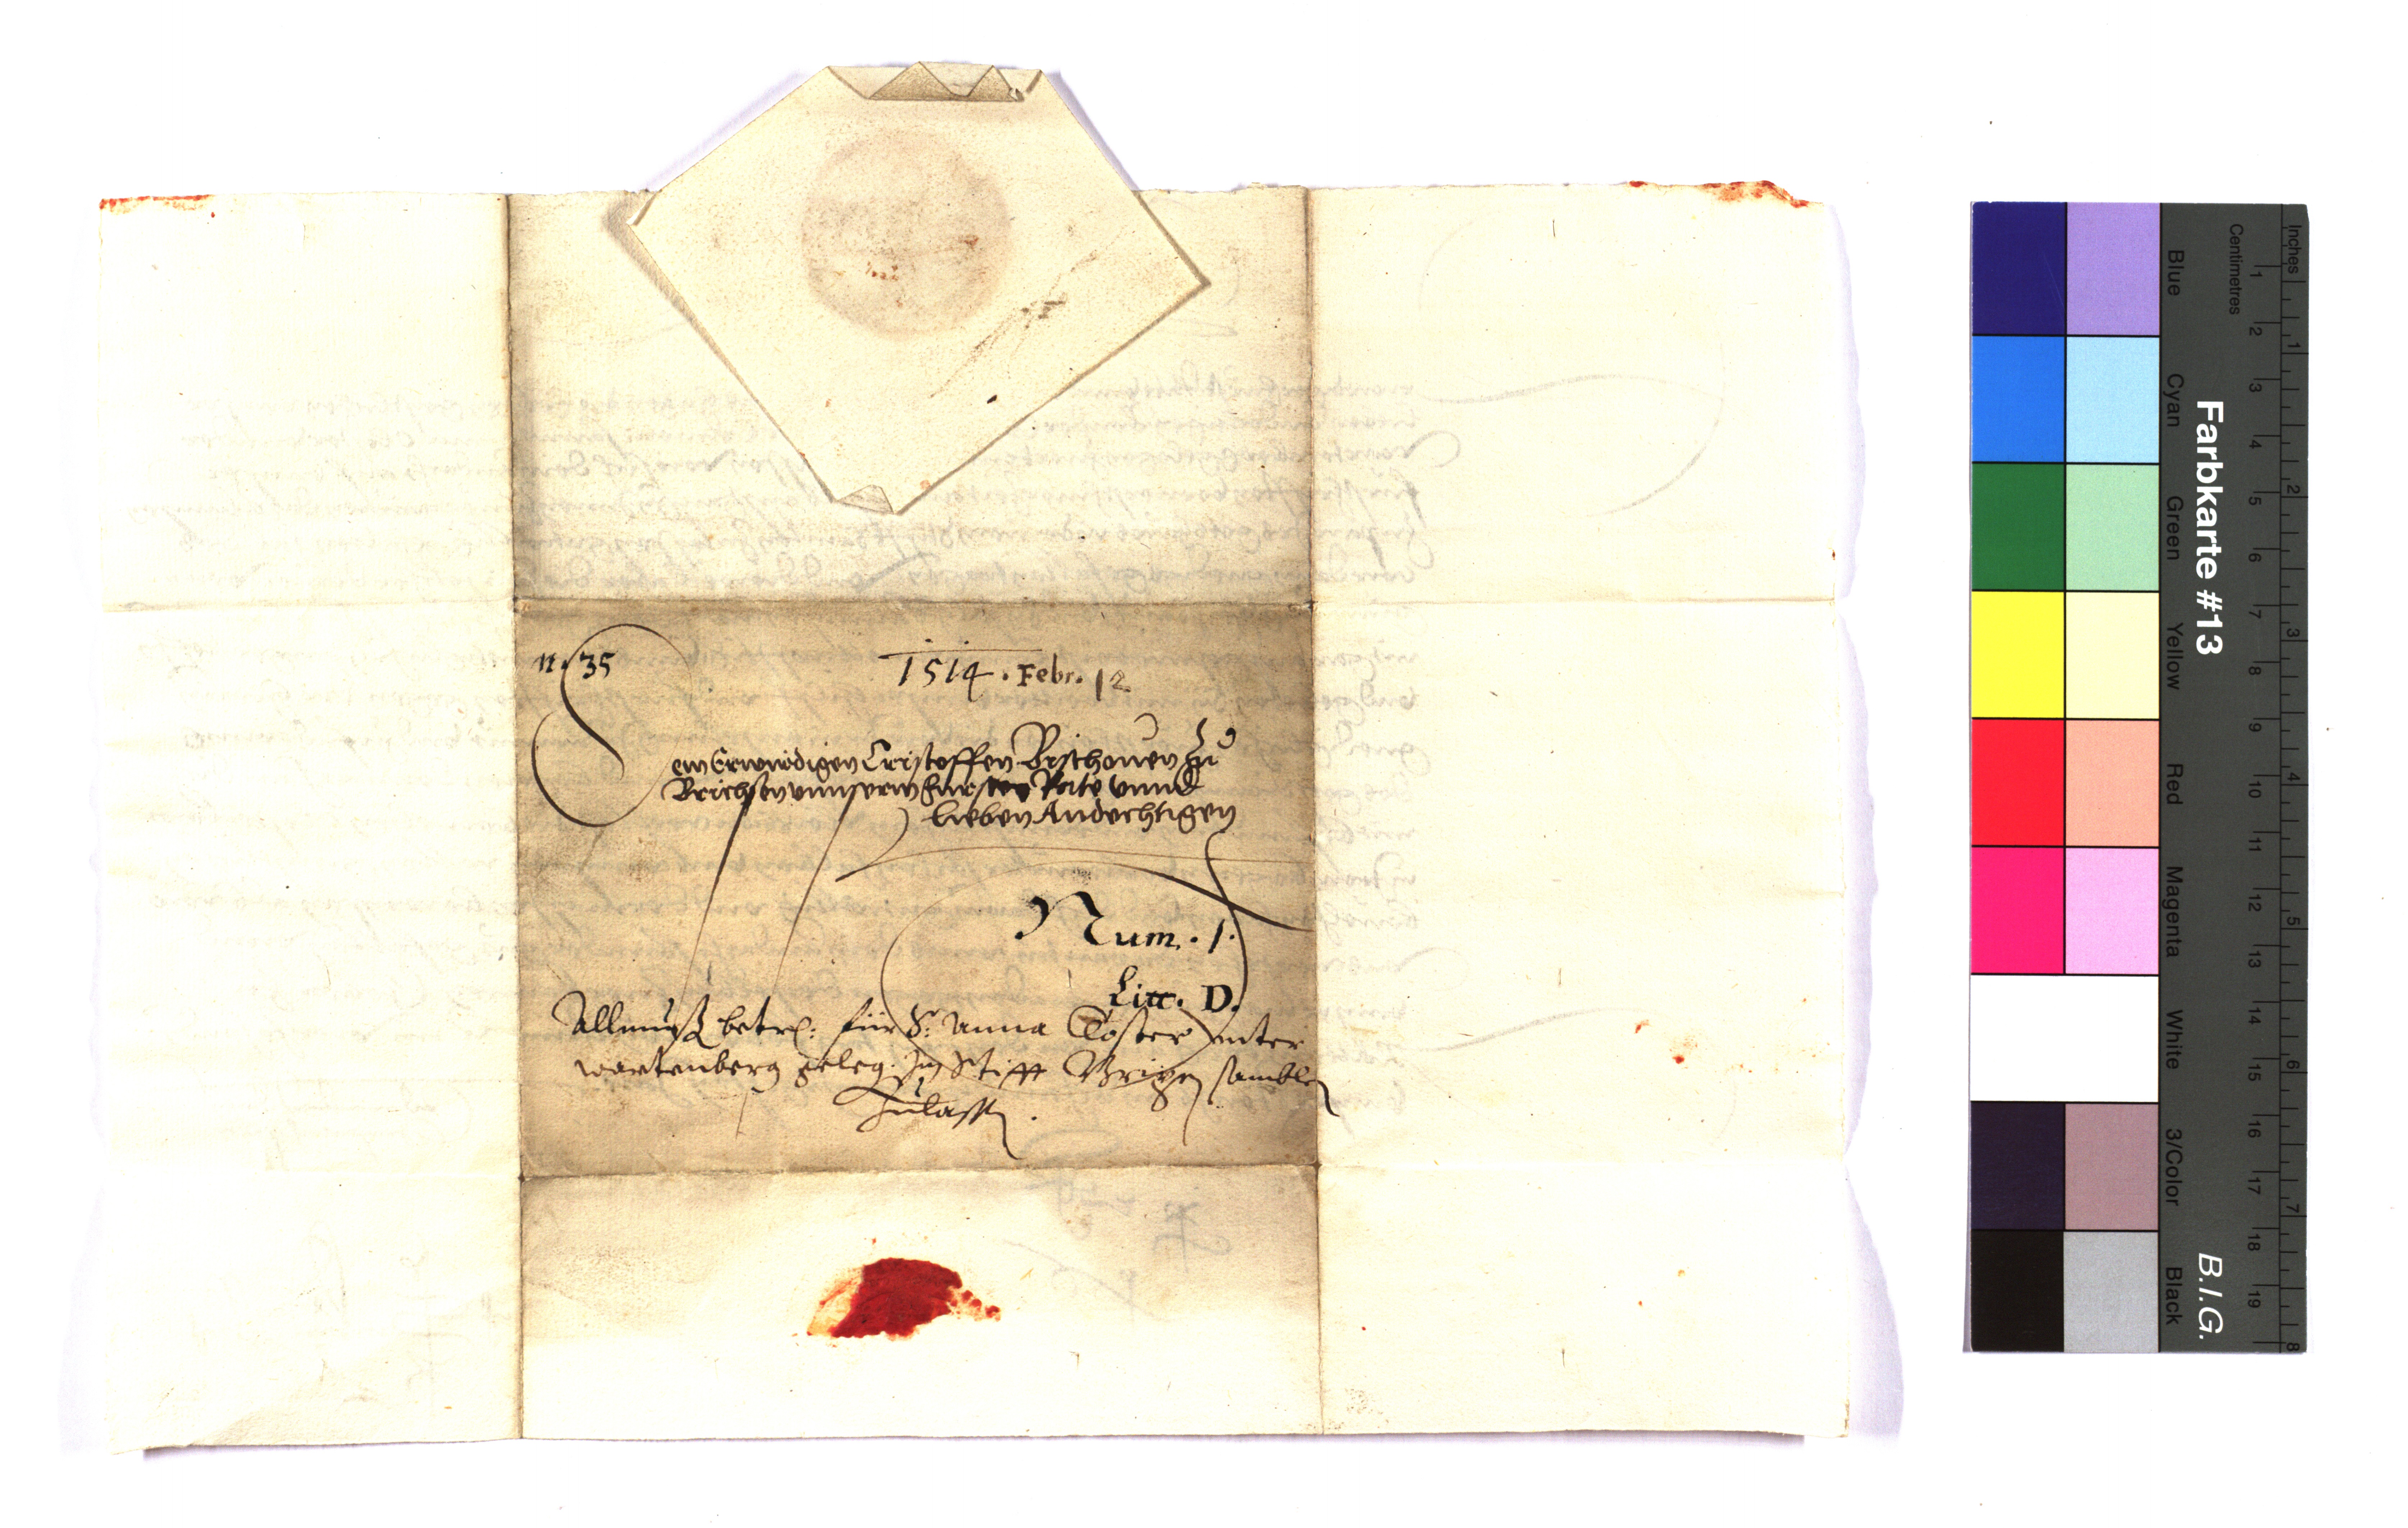 n. 35
1514. Febr. 12
Dem Erwirdigen Cristoffen Bischouen zu
Brichsen vnnserm Fursten Rate vnnd
lieben Andechtigen
Num. 1.
Litt. D.
Allmuß betr: für S: Anna Closter unter
wartenberg geleg. Im Stifft Brixen samblen
Zulassen.
Inches
Centimetres
1 2 3 4 5 6 7 8 9 10 11 12 13 14 15 16 17 18 19
1 2 3 4 5 6 7 8
Farbkarte #13
B.I.G.
Blue
Cyan
Green
Yellow
Red
Magenta
White
3/Color
Black